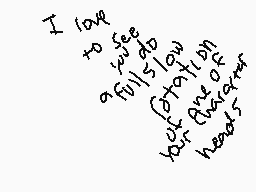 I love
to see
you do
a full slow
rotation
of one of
your character
heads